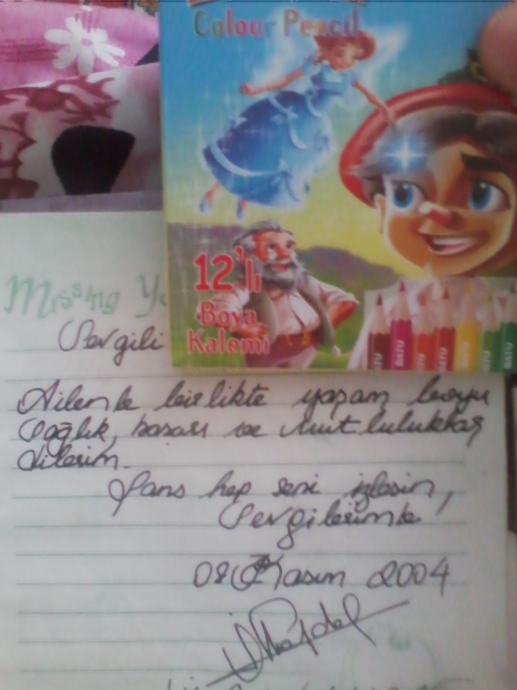 Colour Pencil
12'li
Boya
Kalemi
BATU BATU BATU BATU
Missing
Sevgili
Ailenle birlikte yaşam boyu
Sağlık, başarı ve mutluluklar
dilerim.
Şans hep seni izlesin,
Sevgilerimle
08 Kasım 2004